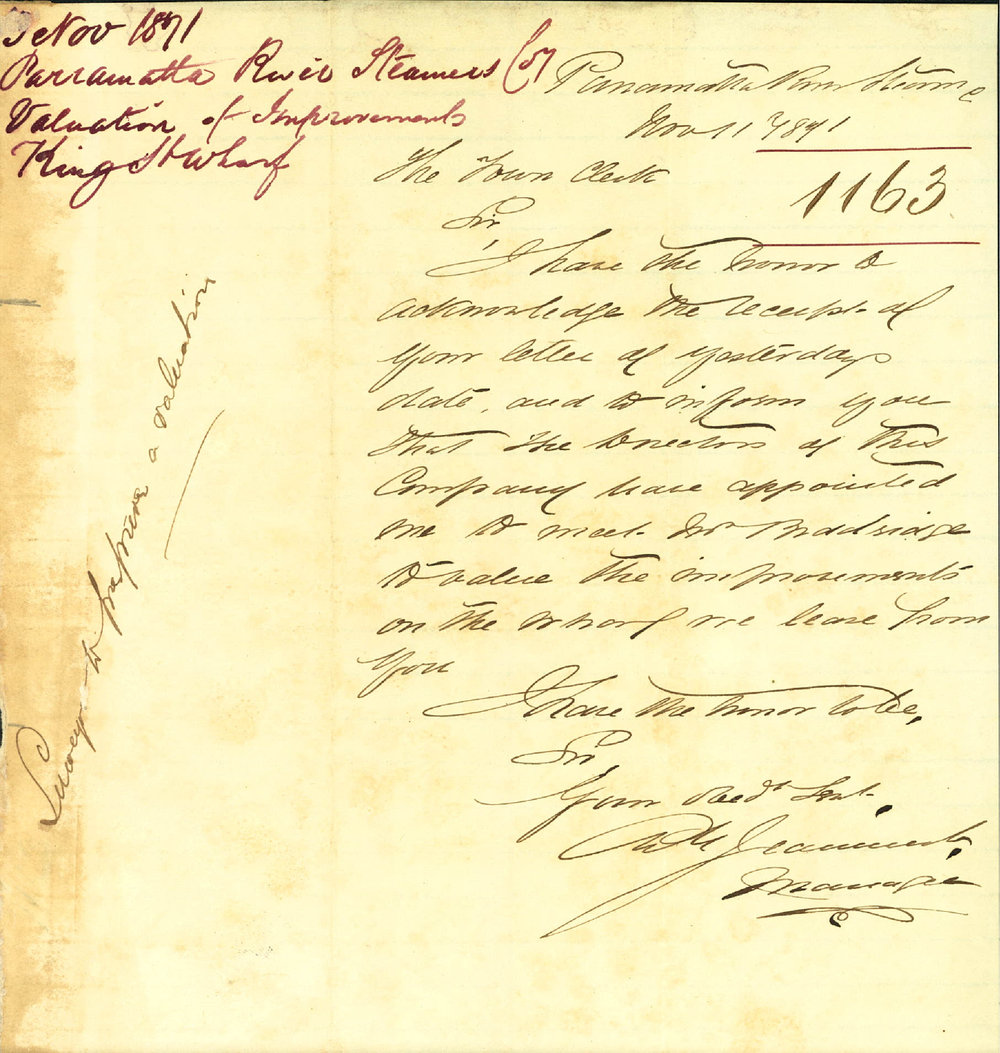 Nov 1871
Parramatta River Steamers Coy
Valuation of Improvements
King St Wharf
Parramatta River Steam
Nov 11 1871
1163
The Town Clerk
Sir,
I have the honor to
acknowledge the receipt of
your letter of yesterdays
date, and to inform you
that the Directors of this
Company have appointed
me to meet Mr Bradridge
to value the improvements
on the wharf we lease from
you
I have the honor to be,
Sir
Your Obedt Servt,
Jeannerett,
Manager
Surveyor to prepare a valuation